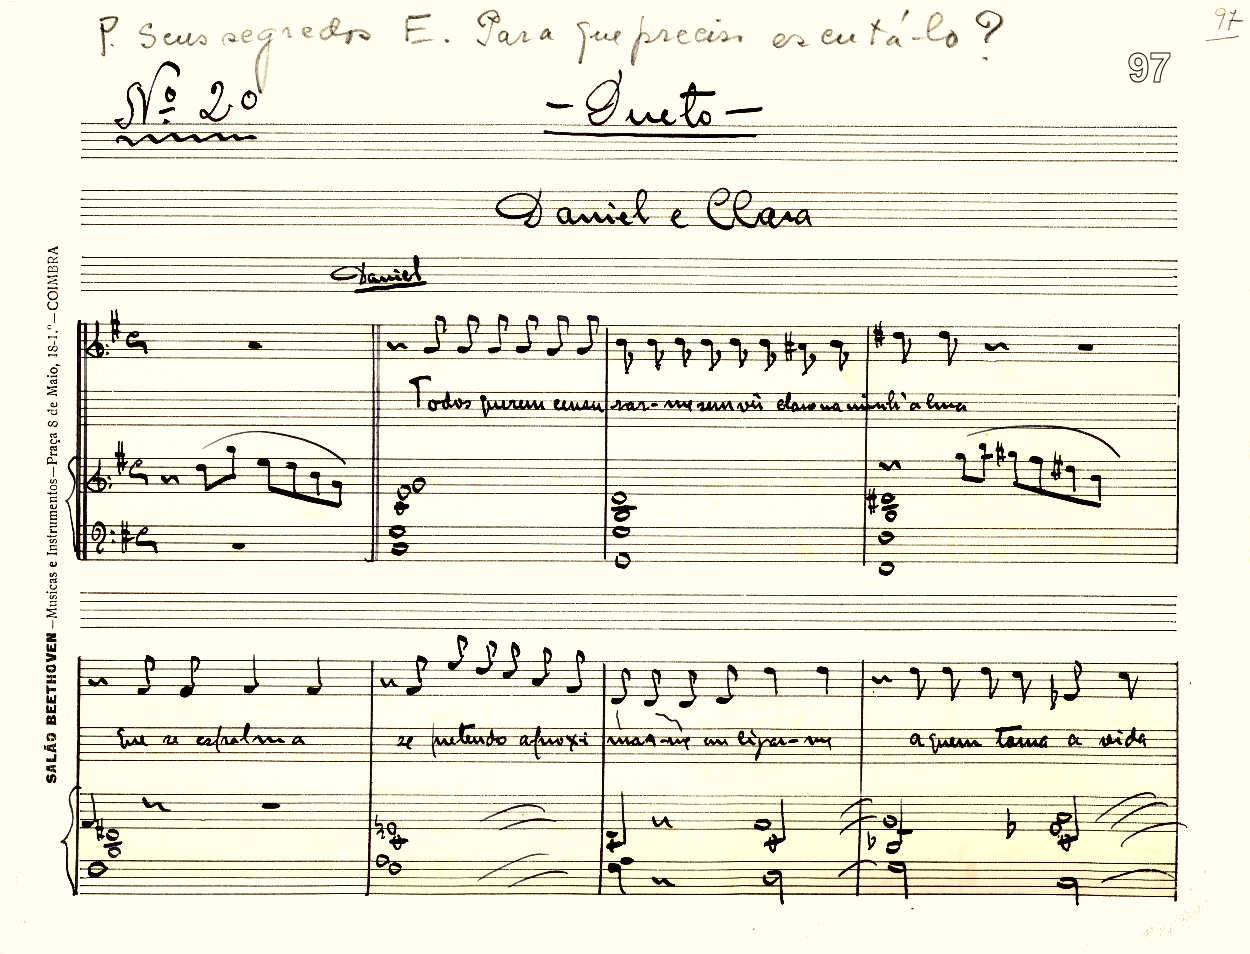 P. Seus segredos E. Para que preciso escutá-lo?
97
97
Nº 20
- Dueto -
Daniel e Clara
Daniel
Todos querem censurar-me sem vêr claro na minh'alma
SALÃO BEETHOVEN—Musicas e Instrumentos—Praça 8 de Maio, 18-1.º—COIMBRA
que se espalma se pretendo aproximar-me ou ligar-me a quem toma a vida